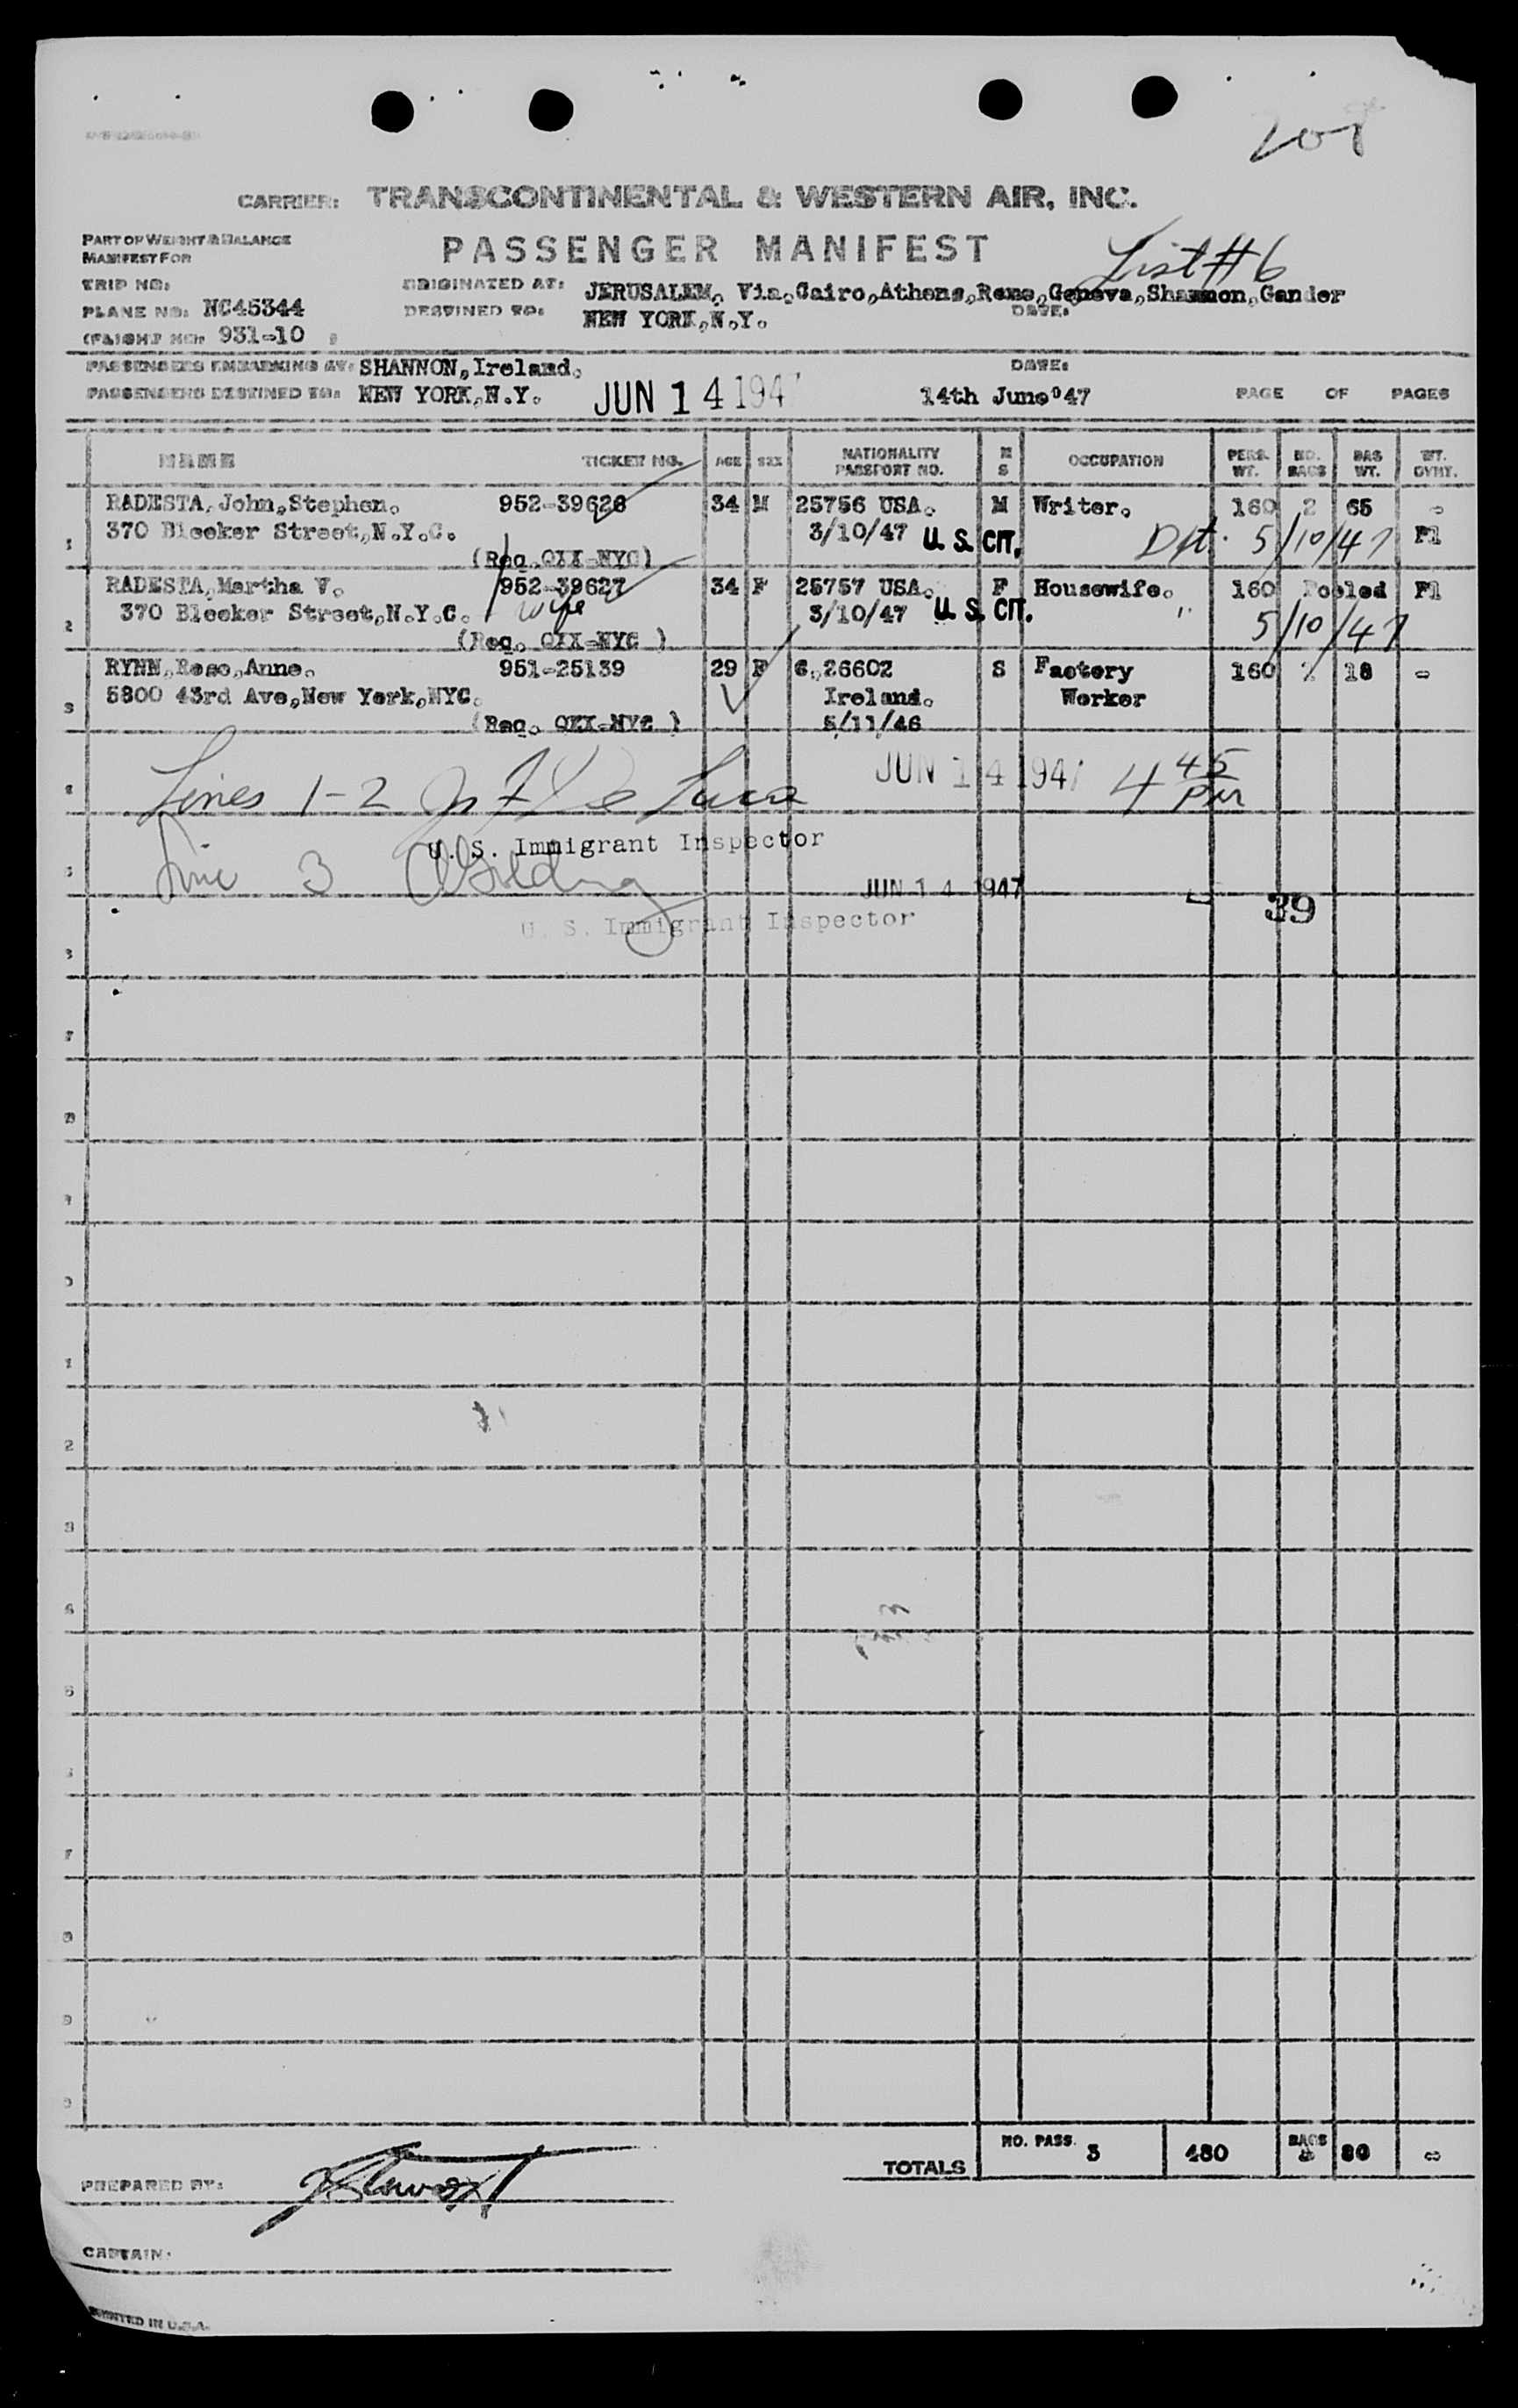 208
CARRIER: TRANSCONTINENTAL & WESTERN AIR, INC.
PART OF WEIGHT & BALANCE
MANIFEST FOR
PASSENGER MANIFEST
List #6
TRIP NO:
ORIGINATED AT: JERUSALEM, Via.Cairo,Athens,Rome,Geneva,Shannon,Gander
PLANE NO: NC45344
DESTINED TO: NEW YORK,N.Y.
DATE:
(FLIGHT NO: 931-10
PASSENGERS EMBARKING AT: SHANNON,Ireland.
DATE:
PASSENGERS DESTINED TO: NEW YORK,N.Y. JUN 14 194 14th June'47 PAGE OF PAGES
NAME TICKET NO. AGE SEX NATIONALITY PASSPORT NO. M S OCCUPATION PERS. WT. NO. BAGS BAG WT. WT. OVHT.
RADESTA,John,Stephen. 952-39626 34 M 25756 USA. M Writer. 160 2 65 -
370 Bleeker Street,N.Y.C. 3/10/47 U. S. CIT. 5/10/47 Pl
1 (Req. NYC)
RADESTA,Martha V. 952-39627 34 F 25757 USA. F Housewife. 160 Pooled Pl
370 Bleeker Street,N.Y.C. Wife 3/10/47 U. S. CIT. " 5/10/47
2 (Req. NYC )
RYNN,Rose,Anne. 951-25139 29 F 26602 S Factory 160 18 -
5800 43rd Ave,New York,NYC. Ireland. Worker
3 (Req. NYC ) 5/11/46
Lines 1-2 De Luca JUN 14 1947 4 45 PM
U. S. Immigrant Inspector
Line 3 JUN 14 1947
39
U. S. Immigrant Inspector
TOTALS NO. PASS. 3 480 BAGS -
PREPARED BY:
CAPTAIN:
PRINTED IN U.S.A.